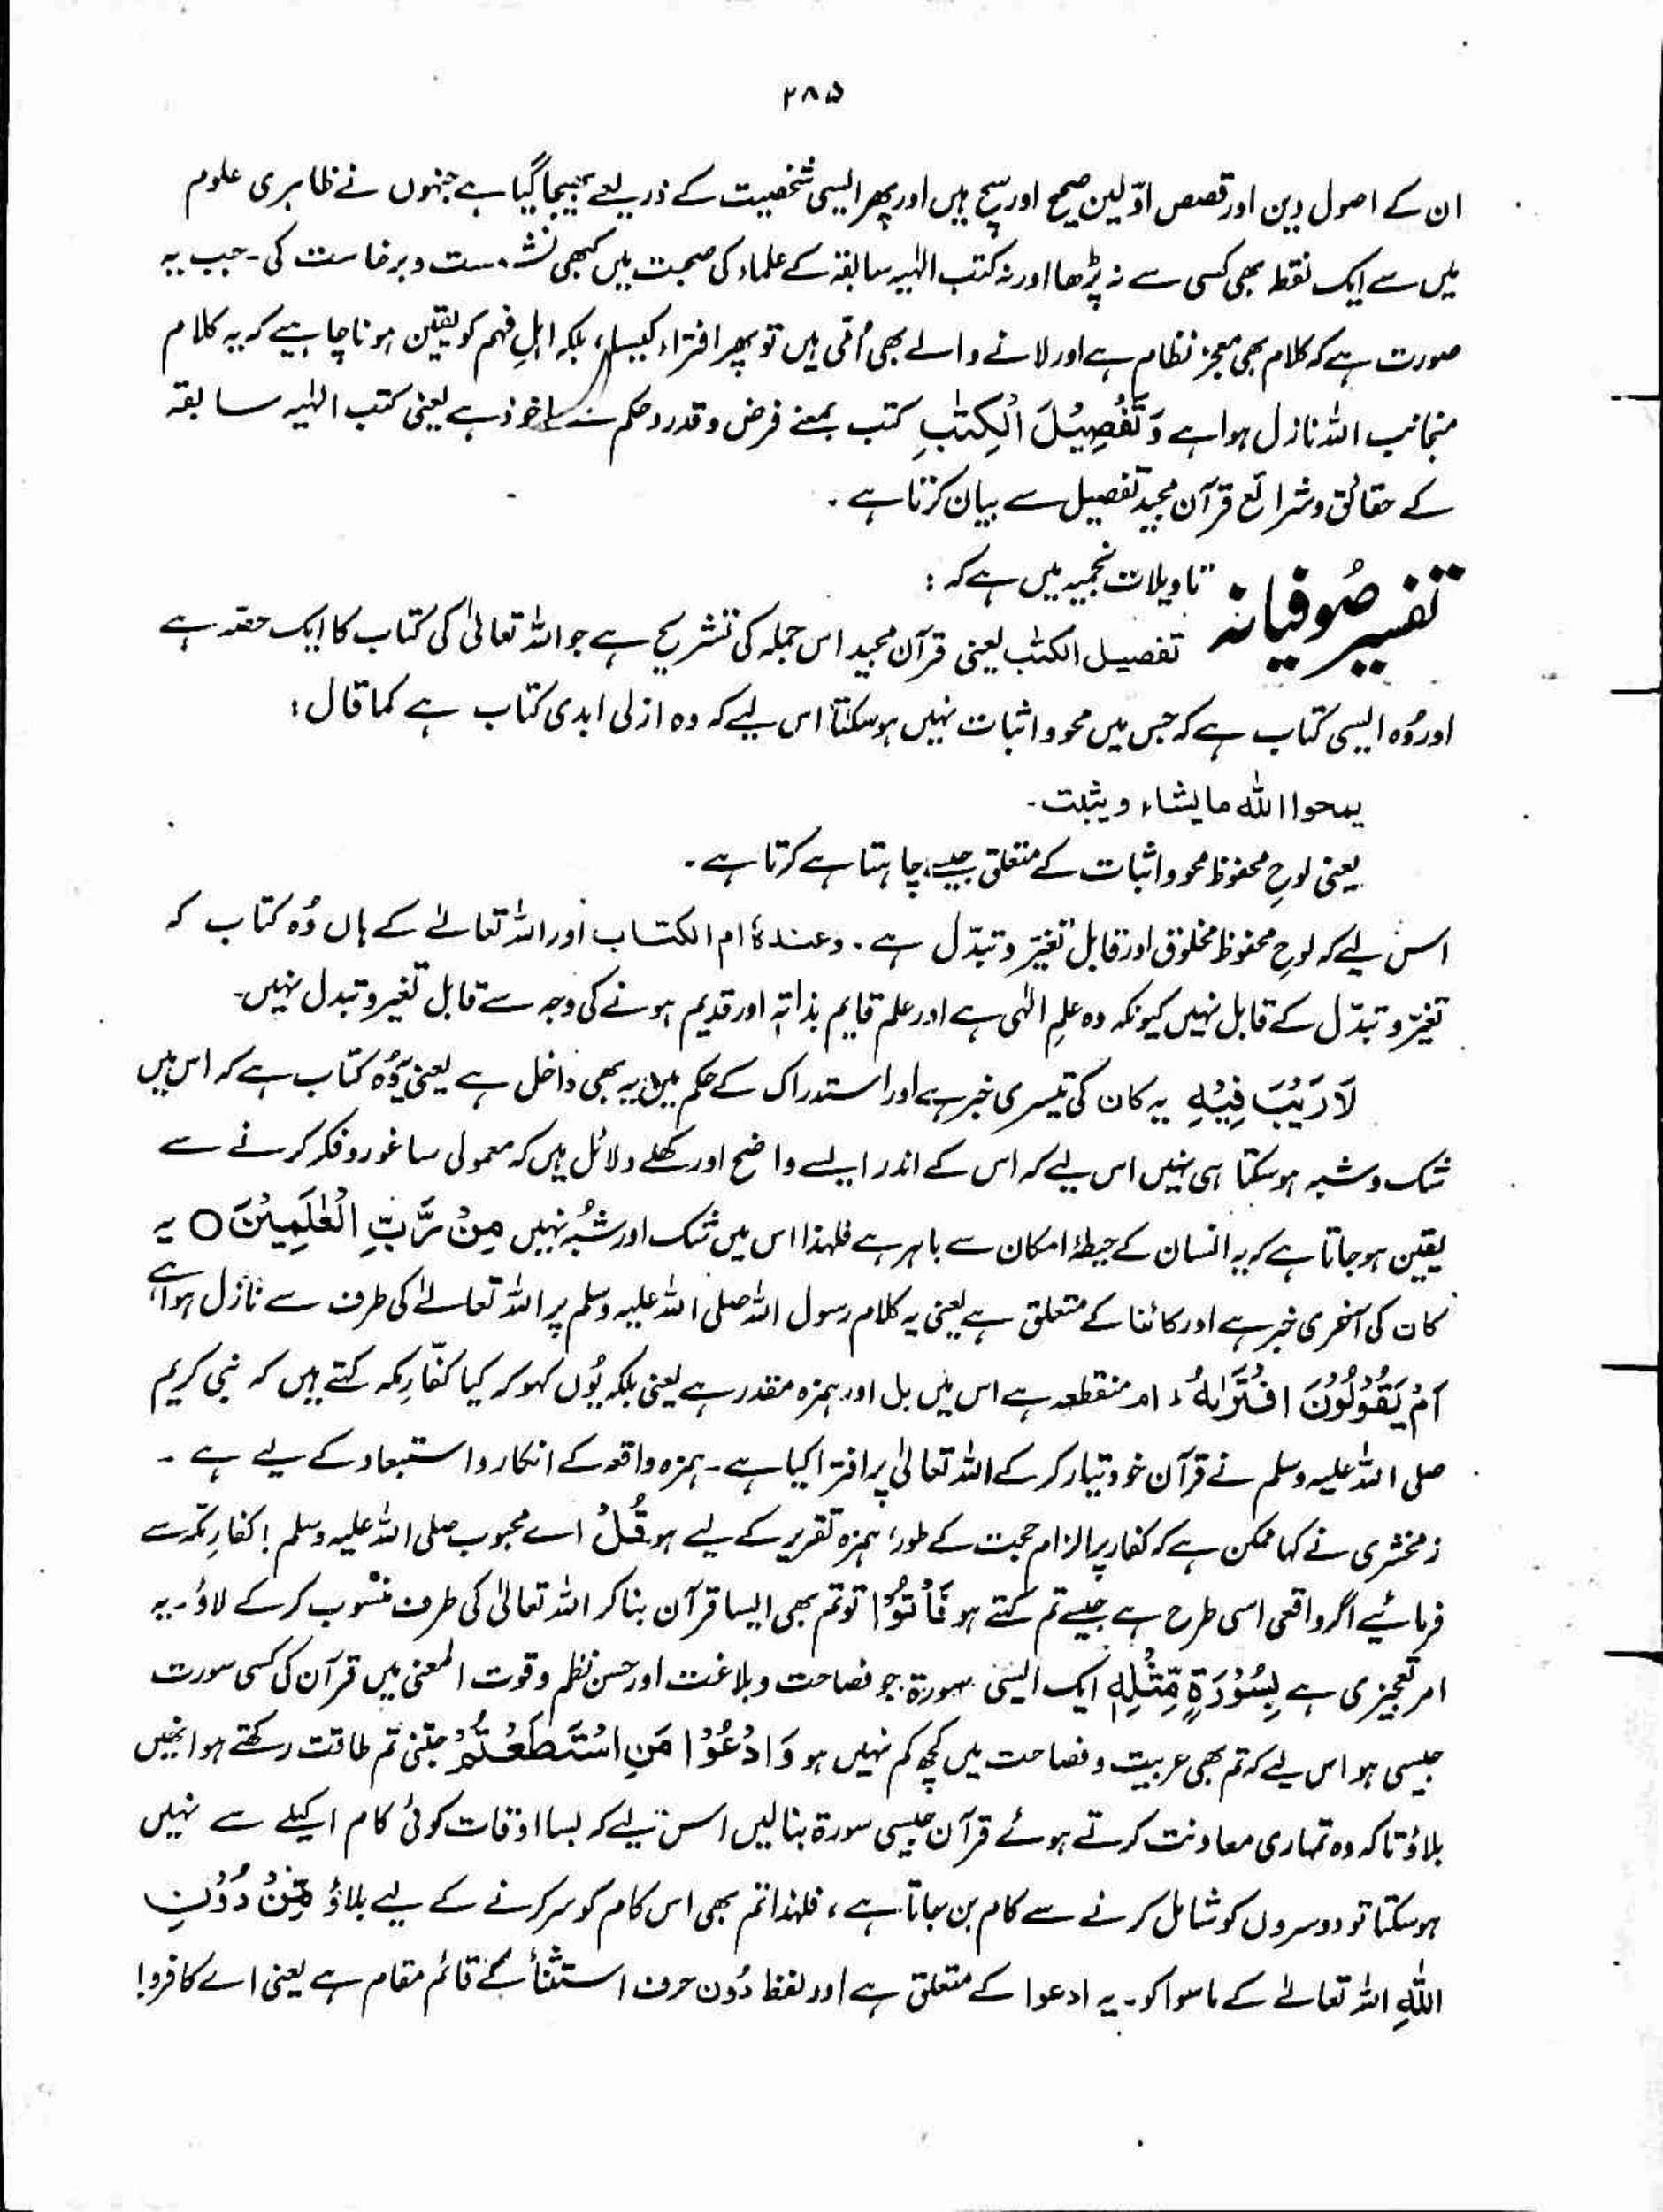 ۲۸۵
ان کے اصول دین اور قصص اوّلین صحیح اور سچ ہیں اور پھر ایسی شخصیت کے ذریعے بھیجا گیا ہے جنہوں نے ظاہری علوم
میں سے ایک نقطہ بھی کسی سے نہ پڑھا اور نہ کتب الٰہیہ سابقہ کے علماء کی صحبت میں کبھی نشست و برخاست کی۔ جب یہ
صورت ہے کہ کلام بھی معجز نظام ہے اور لانے والے بھی اُمّی ہیں تو پھر افتراء کیسا، بلکہ اہلِ فہم کو یقین ہونا چاہیے کہ یہ کلام
منجانب اللہ نازل ہوا ہے وَتَفْصِیْلَ الْکِتٰبِ کتب بمعنے فرض و قدر و حکم سے ماخوذ ہے یعنی کتب الٰہیہ سابقہ
کے حقائق و شرائع قرآن مجید تفصیل سے بیان کرتا ہے۔
تفسیر صُوفیانہ تاویلات نجمیہ میں ہے کہ:
تفصیل الکتٰب یعنی قرآن مجید اس جملہ کی تشریح ہے جو اللہ تعالیٰ کی کتاب کا ایک حصّہ ہے
اور وُہ ایسی کتاب ہے کہ جس میں محو و اثبات نہیں ہوسکتا اس لیے کہ وہ ازلی ابدی کتاب ہے کما قال:
یمحوا اللہ ما یشاء و یثبت۔
یعنی لوحِ محفوظ محو و اثبات کے متعلق جیسے چاہتا ہے کرتا ہے۔
اس لیے کہ لوحِ محفوظ مخلوق اور قابل تغیّر و تبدّل ہے۔ وعندہٗ ام الکتاب اور اللہ تعالےٰ کے ہاں وُہ کتاب کہ
تغیّر و تبدّل کے قابل نہیں کیونکہ وہ علمِ الٰہی ہے اور علم قایم بذاتہٖ اور قدیم ہونے کی وجہ سے قابل تغیر و تبدل نہیں۔
لَا رَیْبَ فِیْہِ یہ کان کی تیسری خبر ہے اور استدراک کے حکم میں یہ بھی داخل ہے یعنی یہ وُہ کتاب ہے کہ اس میں
شک و شبہ ہوسکتا ہی نہیں اس لیے کہ اس کے اندر ایسے واضح اور کھلے دلائل ہیں کہ معمولی سا غور و فکر کرنے سے
یقین ہو جاتا ہے کہ یہ انسان کے حیطۂ امکان سے باہر ہے فلہذا اس میں شک اور شبُہ نہیں مِنْ رَّبِّ الْعٰلَمِیْنَ ○ یہ
کان کی آخری خبر ہے اور کائنا کے متعلق ہے یعنی یہ کلام رسول اللہ صلی اللہ علیہ وسلم پر اللہ تعالےٰ کی طرف سے نازل ہوا ہے
اَمْ یَقُوْلُوْنَ افْتَرٰىہُ ، ام منقطعہ ہے اس میں بل اور ہمزہ مقدر ہے یعنی بلکہ یُوں کہو کہ کیا کفّارِ مکہ کہتے ہیں کہ نبی کریم
صلی اللہ علیہ وسلم نے قرآن خود تیار کر کے اللہ تعالیٰ پر افترا کیا ہے۔ ہمزہ واقعہ کے انکار و استبعاد کے لیے ہے ۔
زمخشری نے کہا ممکن ہے کہ کفار پر الزام حجت کے طور، ہمزہ تقریر کے لیے ہو قُلْ اے محبوب صلی اللہ علیہ وسلم! کفارِ مکہ سے
فرمائیے اگر واقعی اسی طرح ہے جیسے تم کہتے ہو فَأْتُوْا تو تم بھی ایسا قرآن بنا کر اللہ تعالیٰ کی طرف منسوب کر کے لاؤ۔ یہ
امر تعجیزی ہے بِسُوْرَۃٍ مِّثْلِہٖ ایک ایسی سورۃ جو فصاحت و بلاغت اور حسن نظم و قوت المعنیٰ میں قرآن کی کسی سورت
جیسی ہو اس لیے کہ تم بھی عربیت و فصاحت میں کچھ کم نہیں ہو وَادْعُوْا مَنِ اسْتَطَعْتُمْ جتنی تم طاقت رکھتے ہو انھیں
بلاؤ تاکہ وہ تمہاری معاونت کرتے ہوئے قرآن جیسی سورۃ بنالیں اس لیے کہ بسا اوقات کوئی کام اکیلے سے نہیں
ہوسکتا تو دوسروں کو شامل کرنے سے کام بن جاتا ہے، فلہذا تم بھی اس کام کو سر کرنے کے لیے بلاؤ مِّنْ دُوْنِ
اللّٰہِ اللہ تعالےٰ کے ماسوا کو۔ یہ ادعوا کے متعلق ہے اور لفظ دُون حرف استثنأ کے قائم مقام ہے یعنی اے کافرو!